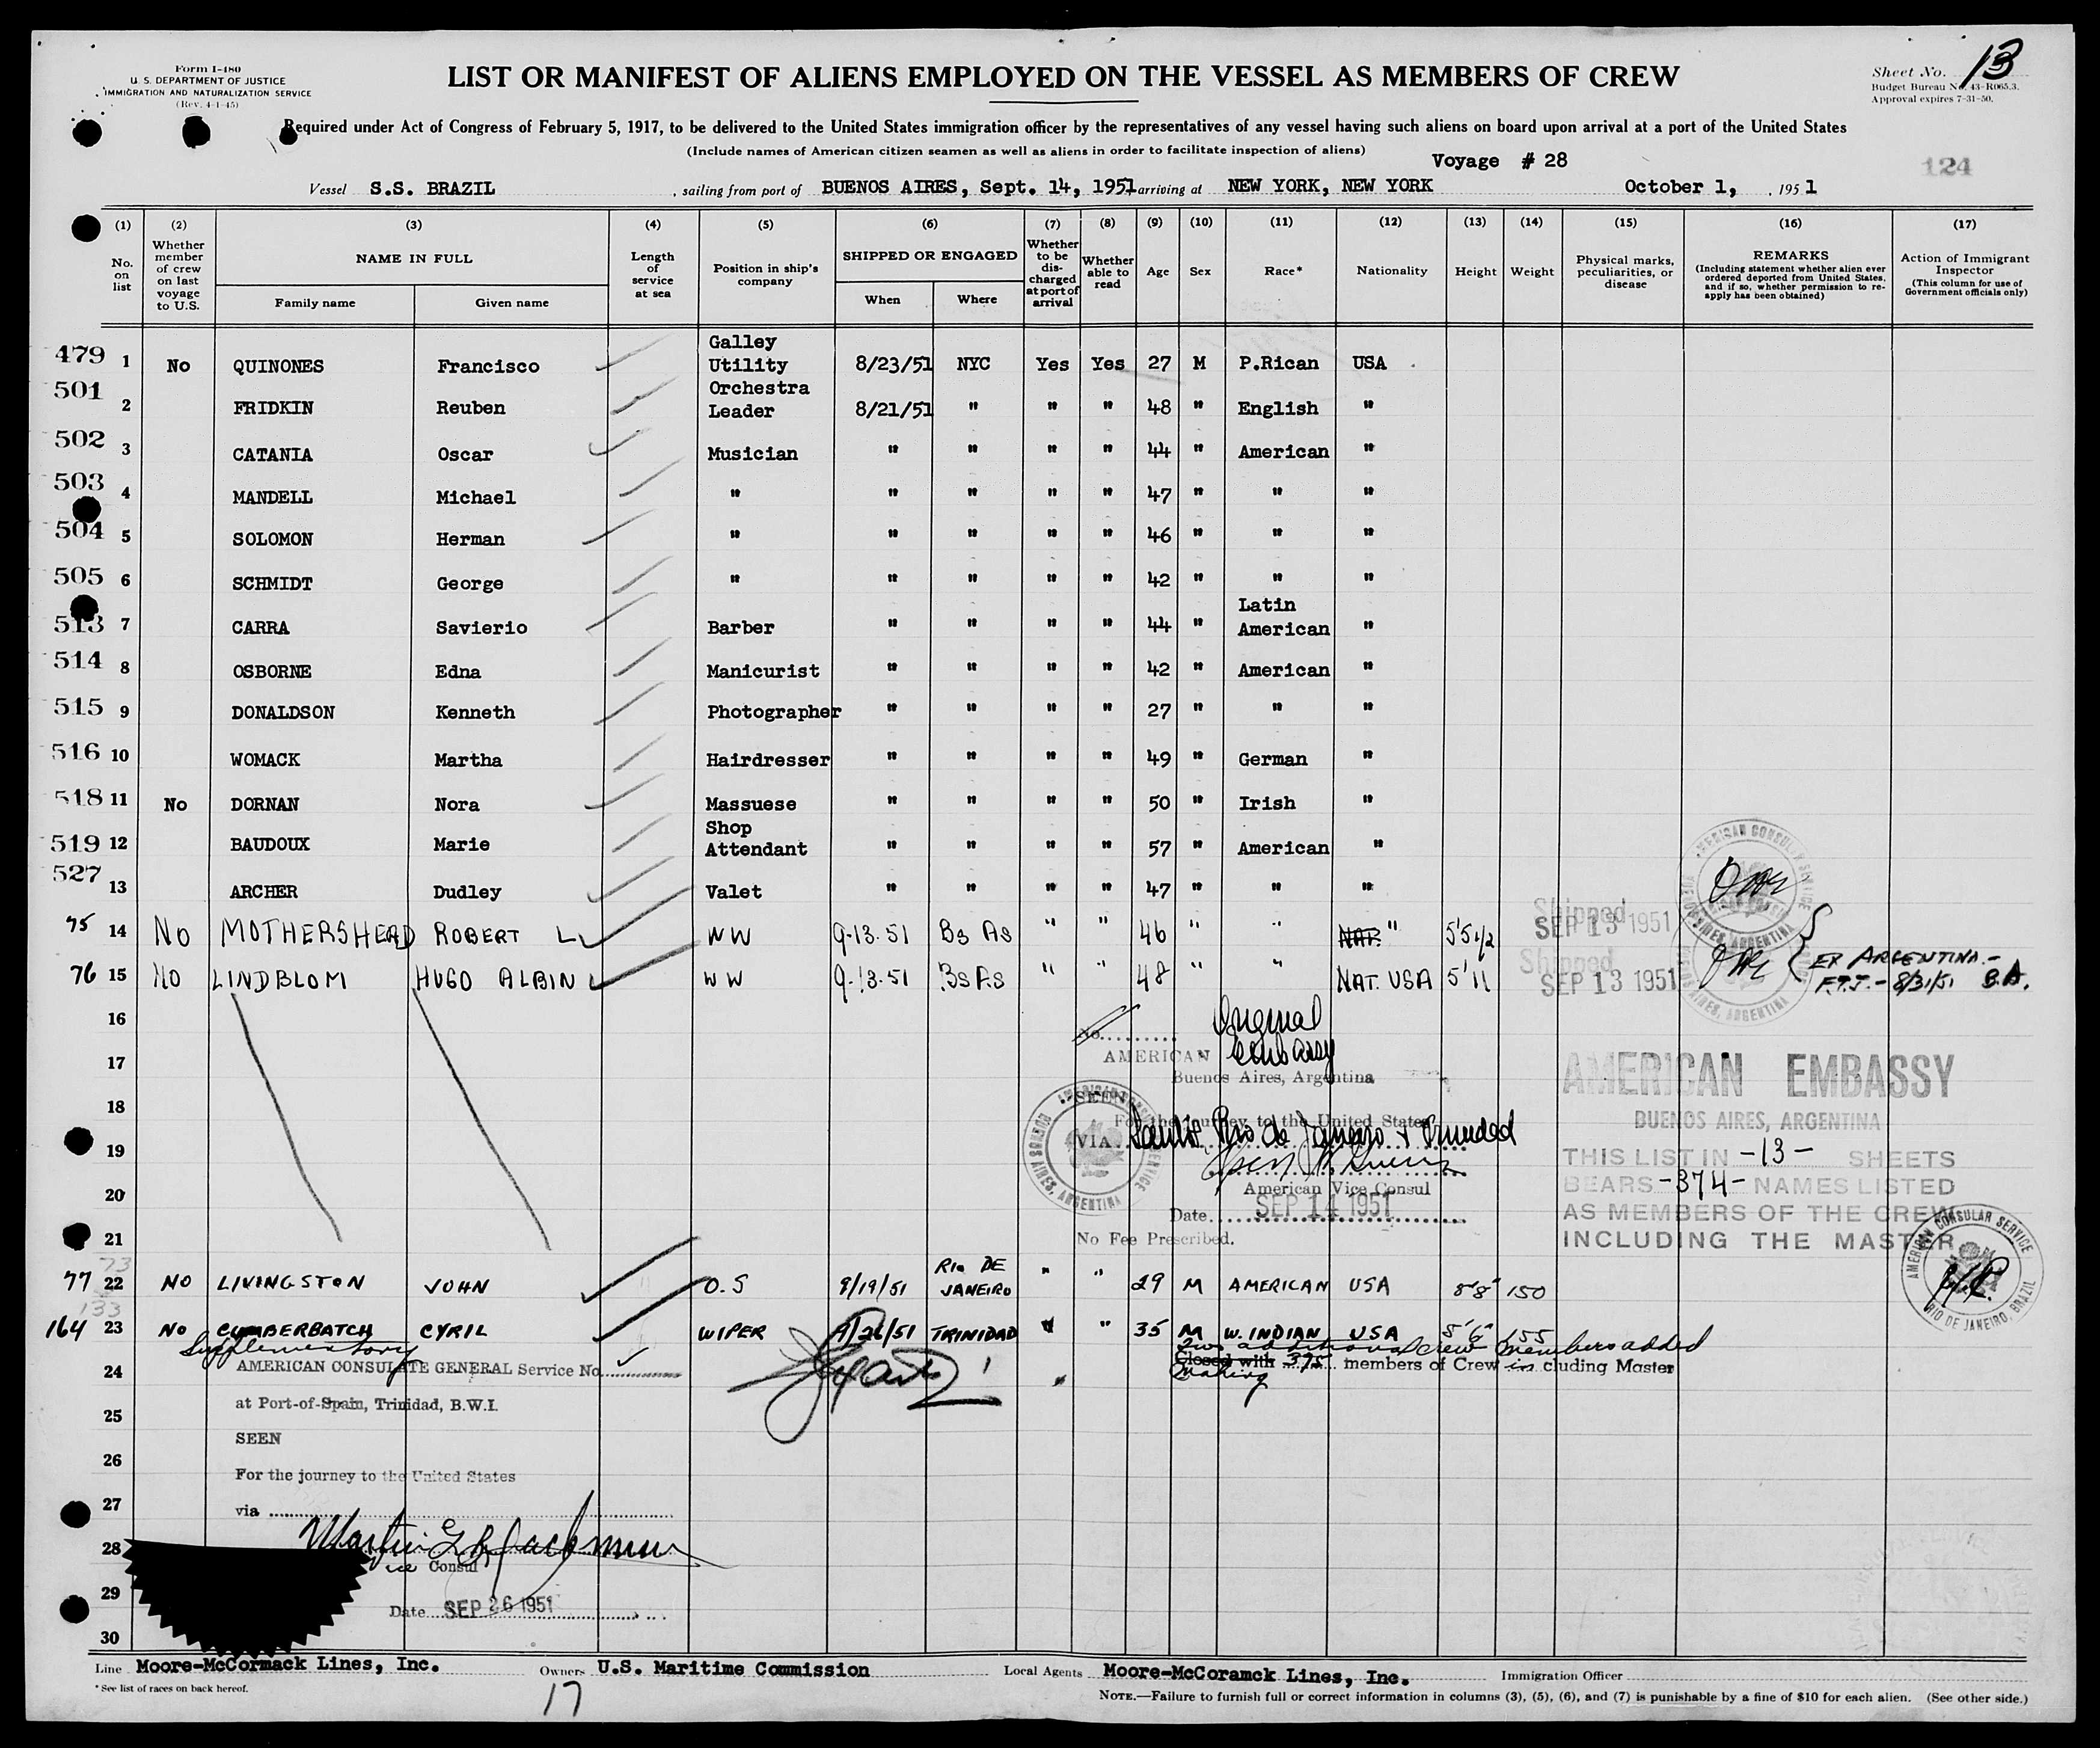 Form I-480
U. S. DEPARTMENT OF JUSTICE
IMMIGRATION AND NATURALIZATION SERVICE
(Rev. 4-1-45)
LIST OR MANIFEST OF ALIENS EMPLOYED ON THE VESSEL AS MEMBERS OF CREW
Sheet No. 13
Budget Bureau No. 43-R065.3.
Approval expires 7-31-50.
Required under Act of Congress of February 5, 1917, to be delivered to the United States immigration officer by the representatives of any vessel having such aliens on board upon arrival at a port of the United States
(Include names of American citizen seamen as well as aliens in order to facilitate inspection of aliens)
Voyage # 28
124
Vessel S.S. BRAZIL , sailing from port of BUENOS AIRES, Sept. 14, 1951 arriving at NEW YORK, NEW YORK October 1, , 1951
(1) No. on list
(2) Whether member of crew on last voyage to U.S.
(3) NAME IN FULL Family name Given name
(4) Length of service at sea
(5) Position in ship's company
(6) SHIPPED OR ENGAGED When Where
(7) Whether to be discharged at port of arrival
(8) Whether able to read
(9) Age
(10) Sex
(11) Race*
(12) Nationality
(13) Height
(14) Weight
(15) Physical marks, peculiarities, or disease
(16) REMARKS (Including statement whether alien ever ordered deported from United States, and if so, whether permission to reapply has been obtained)
(17) Action of Immigrant Inspector (This column for use of Government officials only)
479 1 No QUINONES Francisco Galley Utility 8/23/51 NYC Yes Yes 27 M P.Rican USA
501 2 FRIDKIN Reuben Orchestra Leader 8/21/51 " " " 48 " English "
502 3 CATANIA Oscar Musician " " " " 44 " American "
503 4 MANDELL Michael " " " " " 47 " " "
504 5 SOLOMON Herman " " " " " 46 " " "
505 6 SCHMIDT George " " " " " 42 " " "
513 7 CARRA Savierio Barber " " " " 44 " Latin American "
514 8 OSBORNE Edna Manicurist " " " " 42 " American "
515 9 DONALDSON Kenneth Photographer " " " " 27 " " "
516 10 WOMACK Martha Hairdresser " " " " 49 " German "
518 11 No DORNAN Nora Massuese " " " " 50 " Irish "
519 12 BAUDOUX Marie Shop Attendant " " " " 57 " American "
527 13 ARCHER Dudley Valet " " " " 47 " " "
75 14 No MOTHERSHEAD ROBERT L. WW 9-13-51 Bs As " " 46 " " NAT. " 5'5 1/2 Shipped SEP 13 1951
76 15 No LINDBLOM HUGO ALBIN WW 9-13-51 Bs As " " 48 " " NAT. USA 5'11 Shipped SEP 13 1951
EX ARGENTINA -
F.T.J. - 8/31/51 B.A.
AMERICAN CONSULAR SERVICE
BUENOS AIRES, ARGENTINA
16
17
18
19
20
21
No.
Original
AMERICAN Embassy
Buenos Aires, Argentina
SEEN
For the journey to the United States
VIA Santos Rio de Janeiro & Trinidad
American Vice Consul
Date SEP 14 1951
No Fee Prescribed.
AMERICAN EMBASSY
BUENOS AIRES, ARGENTINA
THIS LIST IN -13- SHEETS
BEARS -374- NAMES LISTED
AS MEMBERS OF THE CREW
INCLUDING THE MASTER
AMERICAN CONSULAR SERVICE
RIO DE JANEIRO, BRAZIL
73
77 22 NO LIVINGSTON JOHN O.S 9/19/51 RIO DE JANEIRO " " 29 M AMERICAN USA 5'8" 150
133
164 23 NO CUMBERBATCH CYRIL WIPER 9/26/51 TRINIDAD " " 35 M W. INDIAN USA 5'6" 155
Supplementary
Two additional crew members added
24 AMERICAN CONSULATE GENERAL Service No.
Closed with 375 members of Crew including Master
making
25 at Port-of-Spain, Trinidad, B.W.I.
SEEN
26
For the journey to the United States
27 via
28
Vice Consul
29
Date SEP 26 1951
30
Line Moore-McCormack Lines, Inc. Owners U.S. Maritime Commission Local Agents Moore-McCoramck Lines, Inc. Immigration Officer
* See list of races on back hereof.
17
NOTE.—Failure to furnish full or correct information in columns (3), (5), (6), and (7) is punishable by a fine of $10 for each alien. (See other side.)